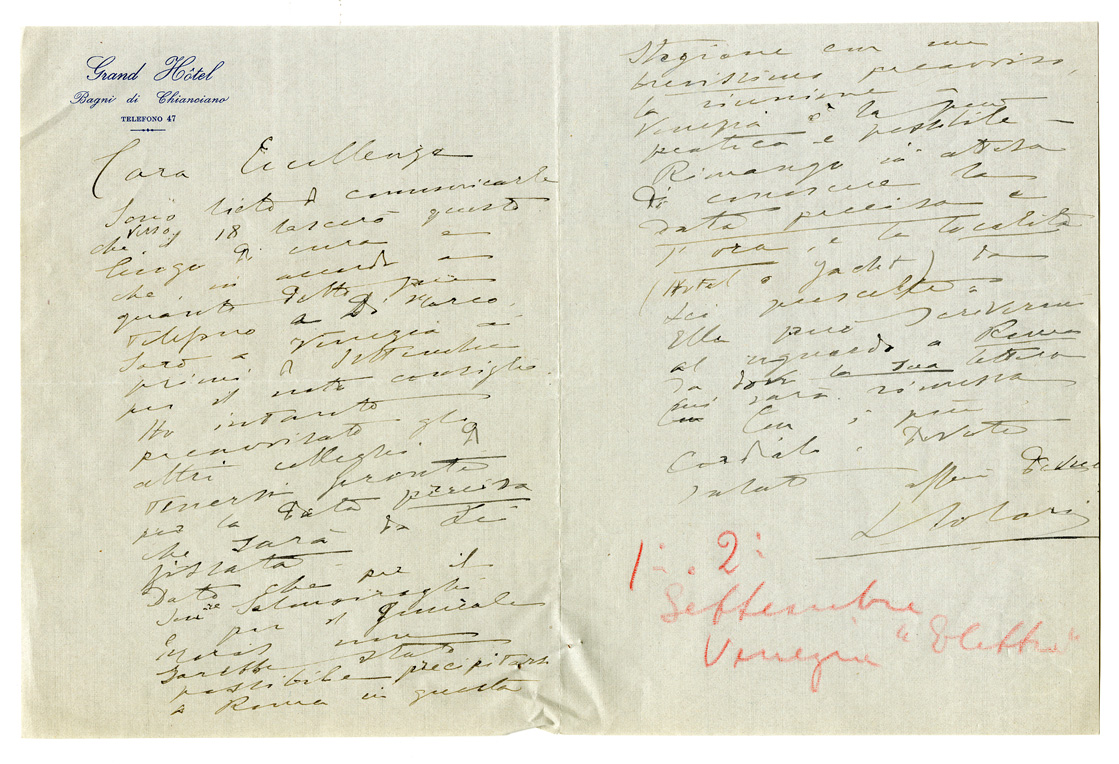 Grand Hôtel
Bagni di Chianciano
TELEFONO 47
Cara Eccellenza
Sono lieto di comunicarle
che verso il 18 lascerò questo
luogo di cura e
che, in accordo a
quanto detto per
telefono a Di Marco,
sarò a Venezia ai
primi di Settembre
per il noto consiglio.
Ho intanto
preavvisato gli
altri colleghi di
tenersi pronti
per la data precisa
che sarà da Lei
fissata.
Dato che per il
Sen.re Salmoiraghi
e per il Generale
non
sarebbe stato
possibile precipitarsi
a Roma in questa
stagione con un
brevissimo preavviso,
la riunione a
Venezia è la più
pratica e possibile
Rimango in attesa
di conoscere la
data precisa e
l'ora, e la località
(Hotel o Yacht) da
Lei prescelta.
Ella può scrivermi
al riguardo a Roma
da dove la sua lettera
mi sarà rimessa
Con i più
cordiali e devoti
saluti
L Solari
1: . 2:
Settembre
Venezia "Elettra"